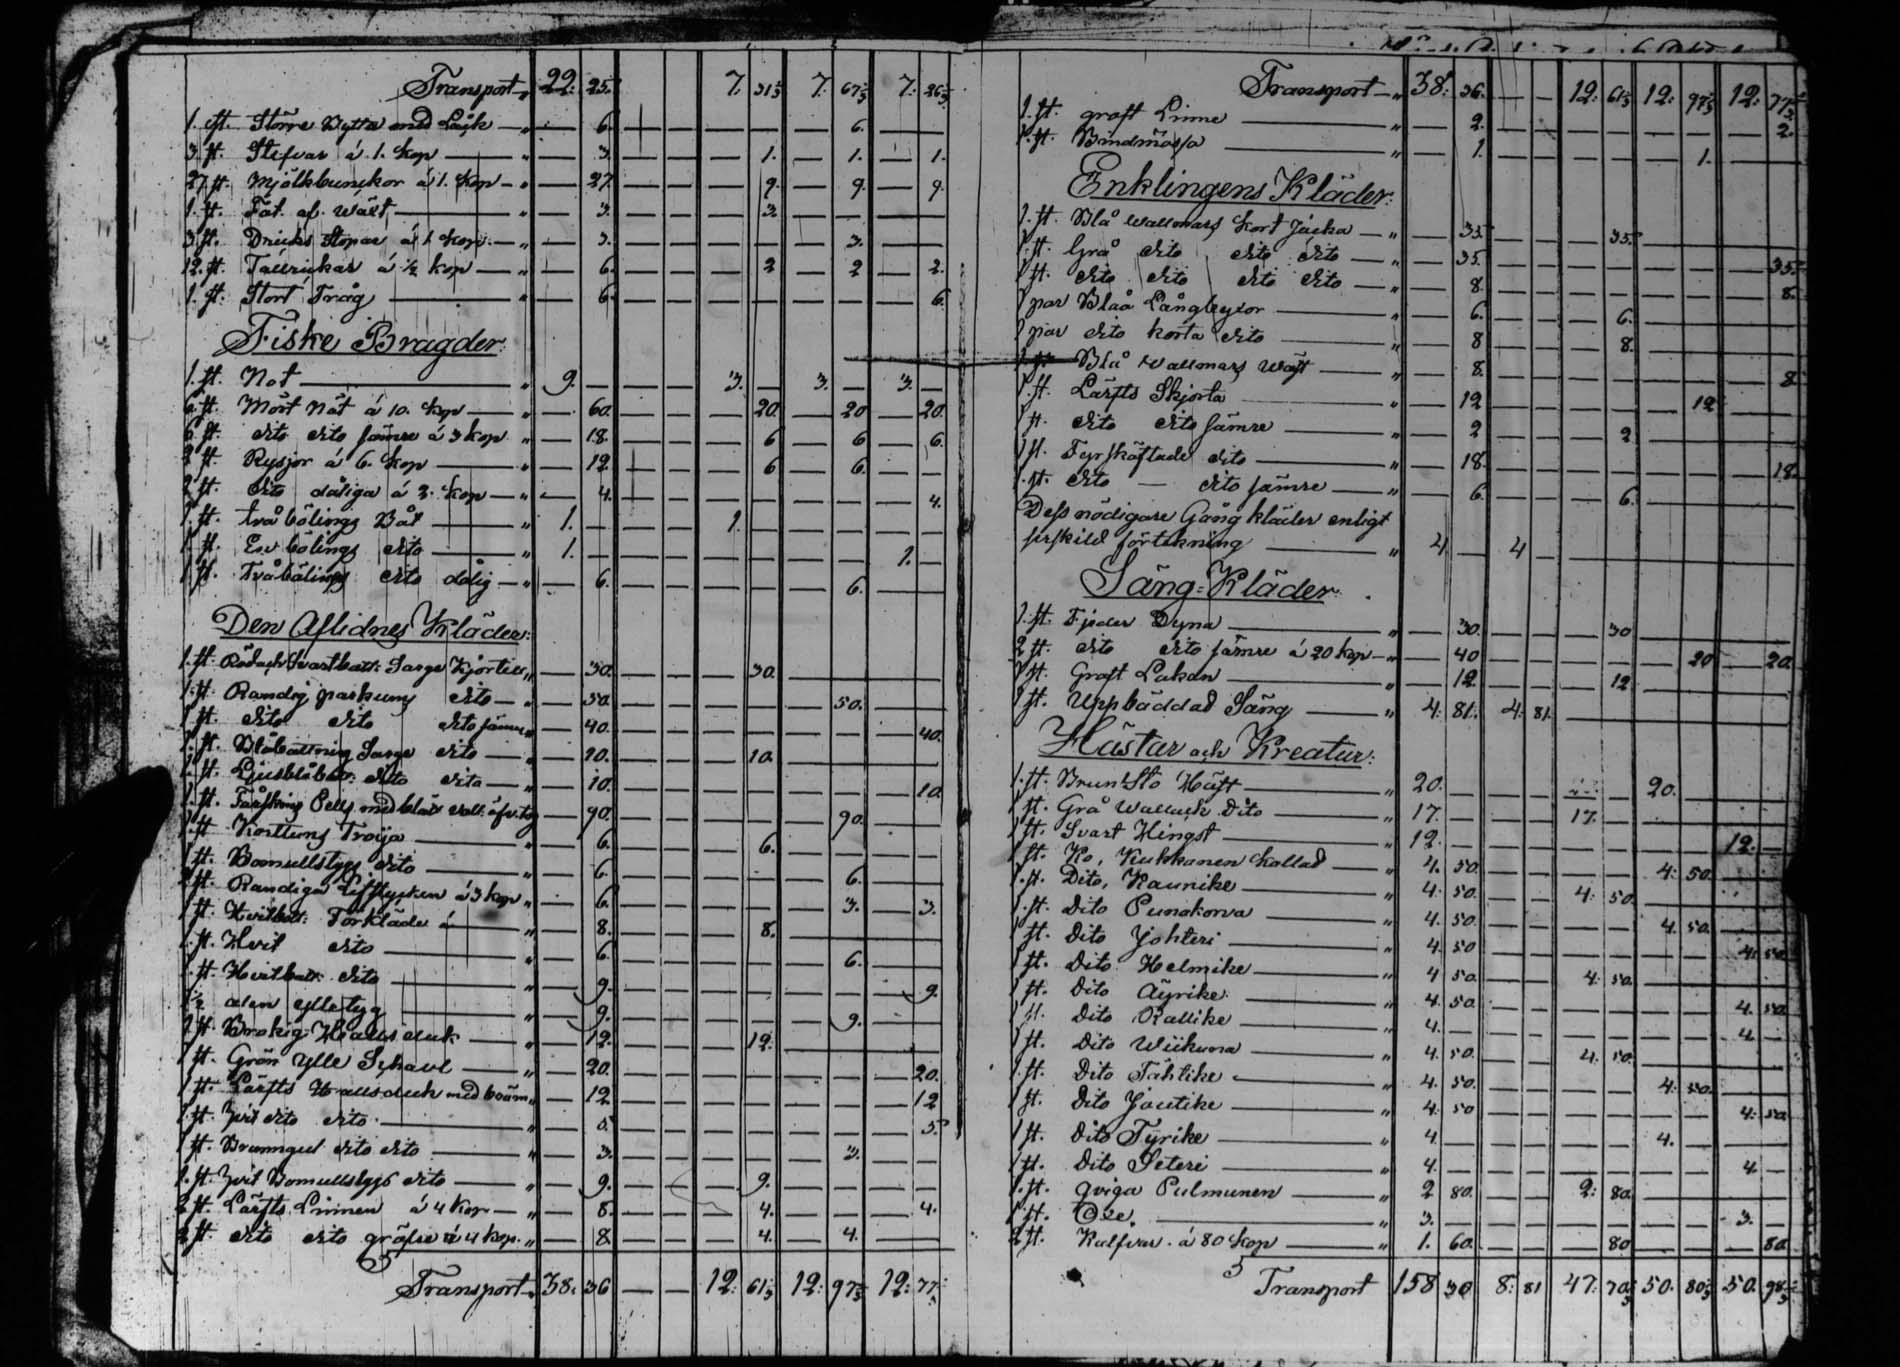 Transport „ 22: 25. 7: 31⅓ 7: 67⅓ 7: 26⅓
1. st. Större Bytta med Låck „ — 6. — — — — — 6. — —
3. st. Stefvar á 1. kop „ — 3. — — — 1. — 1. — 1.
27 st. Mjölkbunckor á 1. kop „ — 27. — — — 9. — 9. — 9.
1. st. Fat af wält „ — 3. — — — 3. — — — —
3 st. Dricks Stopar á 1 kop „ — 3. — — — — — 3. — —
12. st. Tallrickar á ½ kop „ — 6. — — — 2 — 2 — 2.
1. st. Stort Tråg „ — 6. — — — — — — — 6.
Fiske Bragder:
1. st. Not „ 9. — — — 3. — 3. — 3. —
6 st. Mört Nät á 10. kop „ — 60. — — — 20. — 20 — 20.
6 st. dito dito sämre á 3 kop „ — 18. — — — 6 — 6 — 6.
2 st. Rysjor á 6. kop „ — 12. — — — 6 — 6. — —
2 st. dito dåliga á 2. kop „ — 4. — — — — — — — 4.
1. st. två bölings Båt „ 1. — — — 1. — — — — —
1. st. En bölings dito „ 1. — — — — — — — 1. —
1 st. Två bölings dito dålig „ — 6. — — — — — 6. — —
Den Aflidnes Kläder:
1. st. Röd och Svartbott: Sarge Kjortel „ — 30. — — — 30. — — — —
1. st. Randig parkums dito „ — 50. — — — — — 50. — —
1 st. dito dito dito sämre „ — 40. — — — — — — — 40.
1. st. Blåbottnig Sarge dito „ — 10. — — — 10. — — — —
1. st. Ljusblåbott: dito dito „ — 10. — — — — — — — 10
1. st. Fårskins Pells med blått vall. öfvertyg — 90. — — — — — 90. — —
1. st. Korttung Troija „ — 6. — — — 6. — — — —
1 st. Bomullstygs dito „ — 6. — — — — — 6. — —
2 st. Randiga Lifstycken á 3 kop „ — 6. — — — — — 3. — 3.
1 st. Hvitbott: Förkläde á „ — 8. — — — 8. — — — —
1. st. Hvit dito „ — 6. — — — — — 6. — —
1. st. Hvitbott: dito „ — 9. — — — — — — — 9.
1½ alen ylletyg „ — 9. — — — — — 9. — —
1 st. Brokig Hallsduk „ — 12. — — — 12. — — — —
1 st. Grön Ylle Schavl „ — 20. — — — — — — — 20.
1 st. Lärfts Hallsduk med bräm „ — 12 — — — — — — — 12
1 st. Hvit dito dito „ — 5. — — — — — — — 5.
1 st. Brunngul dito dito „ — 3. — — — — — 3. — —
1. st. Hvit Bomullstygs dito „ — 9. — — — 9. — — — —
2 st. Lärfts Linnen á 4 kop „ — 8. — — — 4. — — — 4.
2 st. dito dito gröfre á 4 kop. „ — 8. — — — 4. — 4. — —
Transport „ 38: 36 — — 12: 61⅓ 12: 97⅓ 12: 77⅓
Transport „ 38: 36. — — 12: 61⅓ 12: 97⅓ 12: 77⅓
1. st. groft Linne „ — 2. — — — — — — — 2.
1. st. Bindmössa „ — 1. — — — — — 1. — —
Enklingens Kläder:
1. st. Blå Wallmars kort Jacka „ — 35. — — — 35. — — — —
1. st. Grå dito dito dito „ — 35. — — — — — — — 35.
1 st. dito dito dito dito „ — 8. — — — — — — — 8.
1 par Blåa Långbyxor „ — 6. — — — 6. — — — —
1 par dito korta dito „ — 8 — — — 8. — — — —
1. st. Blå Wallmars Wäst „ — 8. — — — — — — — 8
1 st. Lärfts Skjorta „ — 12 — — — — — 12 — —
1 st. dito dito sämre „ — 2 — — — 2 — — — —
1 st. Fyrskäftade dito „ — 18. — — — — — — — 18.
1. st. dito — dito sämre „ — 6. — — — 6. — — — —
Dess nödigare Gångkläder enligt
serskild förtekning „ 4 — 4 —
Säng=Kläder
1. st. Fjeder Dyna „ — 30. — — — 30 — — — —
2 st. dito dito sämre á 20 kop „ — 40 — — — — — 20 — 20.
1 st. Groft Lakan „ — 12 — — — 12 — — — —
1 st. Uppbäddad Säng „ 4: 81. 4: 81. — — — — — —
Hästar och Kreatur:
1. st. Brun Sto Häst „ 20. — — — — — 20. — — —
1 st. Grå Wallack Dito „ 17. — — — 17. — — — — —
1 st. Svart Hingst „ 12. — — — — — — — 12. —
1 st. Ko, Kukkanen kallad „ 4. 50. — — — — 4: 50. — —
1. st. Dito, Kaunike „ 4: 50. — — 4: 50. — — — —
1. st. Dito Punakorva „ 4. 50. — — — — 4. 50. — —
1 st. Dito Johteri „ 4. 50 — — — — — — 4: 50
1 st. Dito Helmike „ 4 50. — — 4: 50. — — — —
1 st. Dito Äyrike „ 4. 50. — — — — — — 4. 50
1 st. Dito Rallike „ 4. — — — — — — — 4 —
1 st. Dito Wiikuna „ 4. 50. — — 4: 50. — — — —
1 st. Dito Tähtike „ 4. 50. — — — — 4. 50. — —
1 st. Dito Joutike „ 4: 50 — — — — — — 4: 50
1 st. Dito Tyrike „ 4. — — — — — 4. — — —
1 st. Dito Seteri „ 4. — — — — — — — 4. —
1. st. Qviga Pulmunen „ 2 80. — — 2: 80. — — — —
1 st. Oxe „ 3. — — — — — — — 3. —
2 st. Kalfvar á 80 kop „ 1. 60. — — — 80 — — — 80
Transport 158 30 8: 81 47: 70⅓ 50. 80⅓ 50. 98⅓